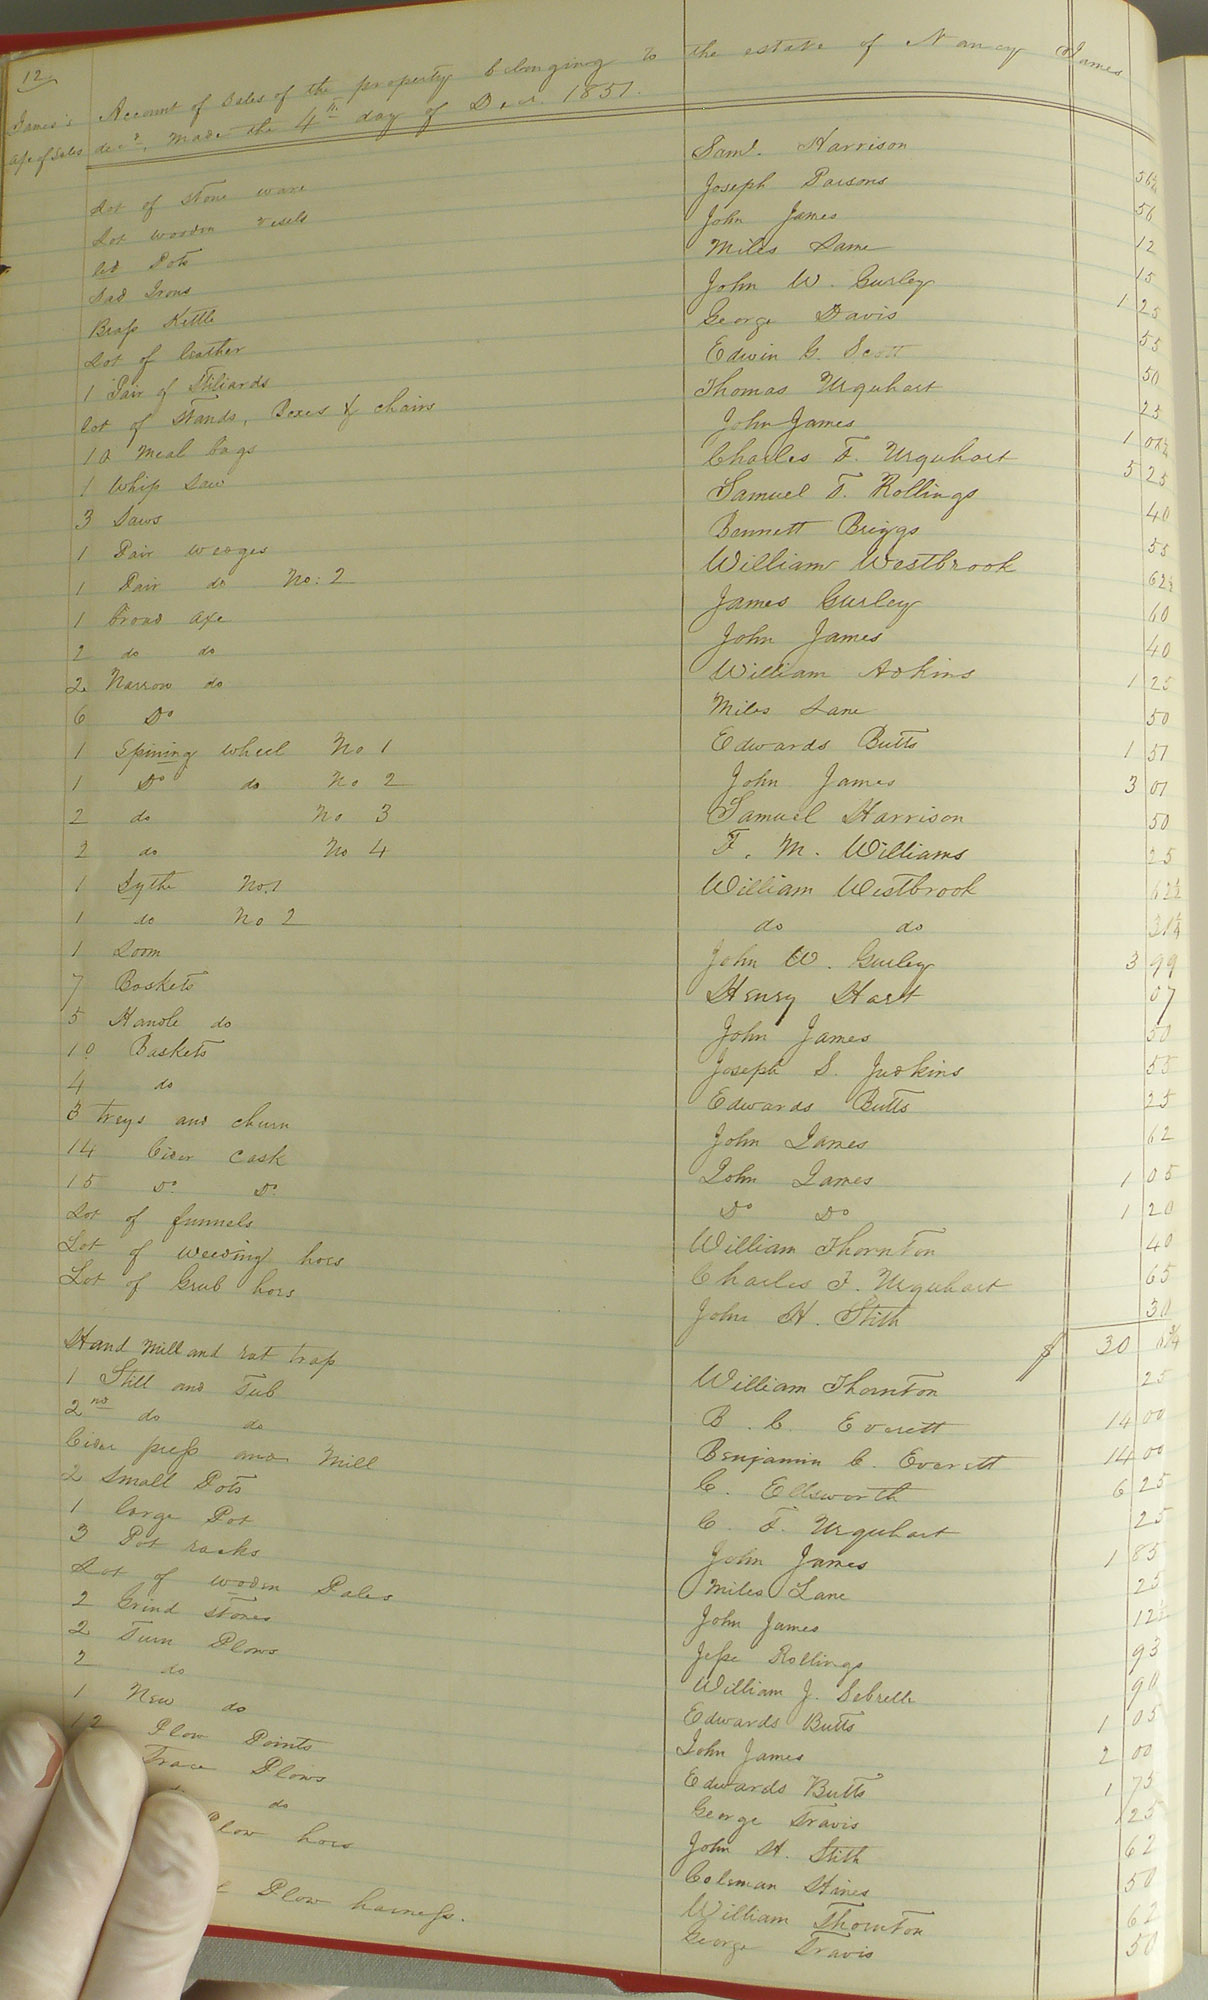 12
James's Account of Sales of the property belonging to the estate of Nancy James
a/c of Sales decd. Made the 4th day of Decr. 1851.
Lot of stone ware Saml. Harrison 56¼
Lot wooden vesels Joseph Parsons 56
old Pots John James 12
Sad Irons Miles Lane 15
Brass Kettle John W. Gurley 1 25
Lot of leather George Davis 55
1 Pair of Stiliards Edwin G. Scott 50
lot of Stands, Boxes & chairs Thomas Urquhart 25
10 Meal bags John James 1 01½
1 Whip Saw Charles F. Urquhart 5 25
3 Saws Samuel T. Rollings 40
1 Pair wedges Bennett Briggs 55
1 Pair do No: 2 William Westbrook 62½
1 broad axe James Gurley 60
2 do do John James 40
2 Narrow do William Adkins 1 25
6 Do Miles Lane 50
1 Spining wheel No 1 Edwards Butts 1 51
1 Do do No 2 John James 3 01
2 do No 3 Samuel Harrison 50
2 do No 4 F. M. Williams 25
1 Sythe No.1 William Westbrook 62½
1 do No 2 do do 31¼
1 Loom John W. Gurley 3 99
7 Baskets Henry Hart 07
5 Handle do John James 50
10 Baskets Joseph S. Judkins 55
4 do Edwards Butts 25
3 treys and churn John James 62
14 Cider cask John James 1 05
15 Do Do Do Do 1 20
Lot of funnels William Thornton 40
Lot of weeding hoes Charles F. Urquhart 65
Lot of Grub hoes John H. Stith 30
$ 30
Hand Mill and rat trap William Thornton 25
1 Still and Tub B. C. Everett 14 00
2nd do do Benjamin C. Everett 14 00
Cider press and Mill C. Ellsworth 6 25
2 Small Pots C. F. Urquhart 25
1 large Pot John James 1 85
3 Pot racks Miles Lane 25
Lot of wooden Pales John James 12½
2 Grind stones Jesse Rollings 93
2 Turn Plows William J. Sebrell 90
2 do Edwards Butts 1 05
1 New do John James 2 00
12 Plow Points Edwards Butts 1 75
Trace Plows George Travis 1 25
do do John H. Stith 62
Plow hoes Coleman Hines 50
William Thornton 62
Plow harness. George Travis 50